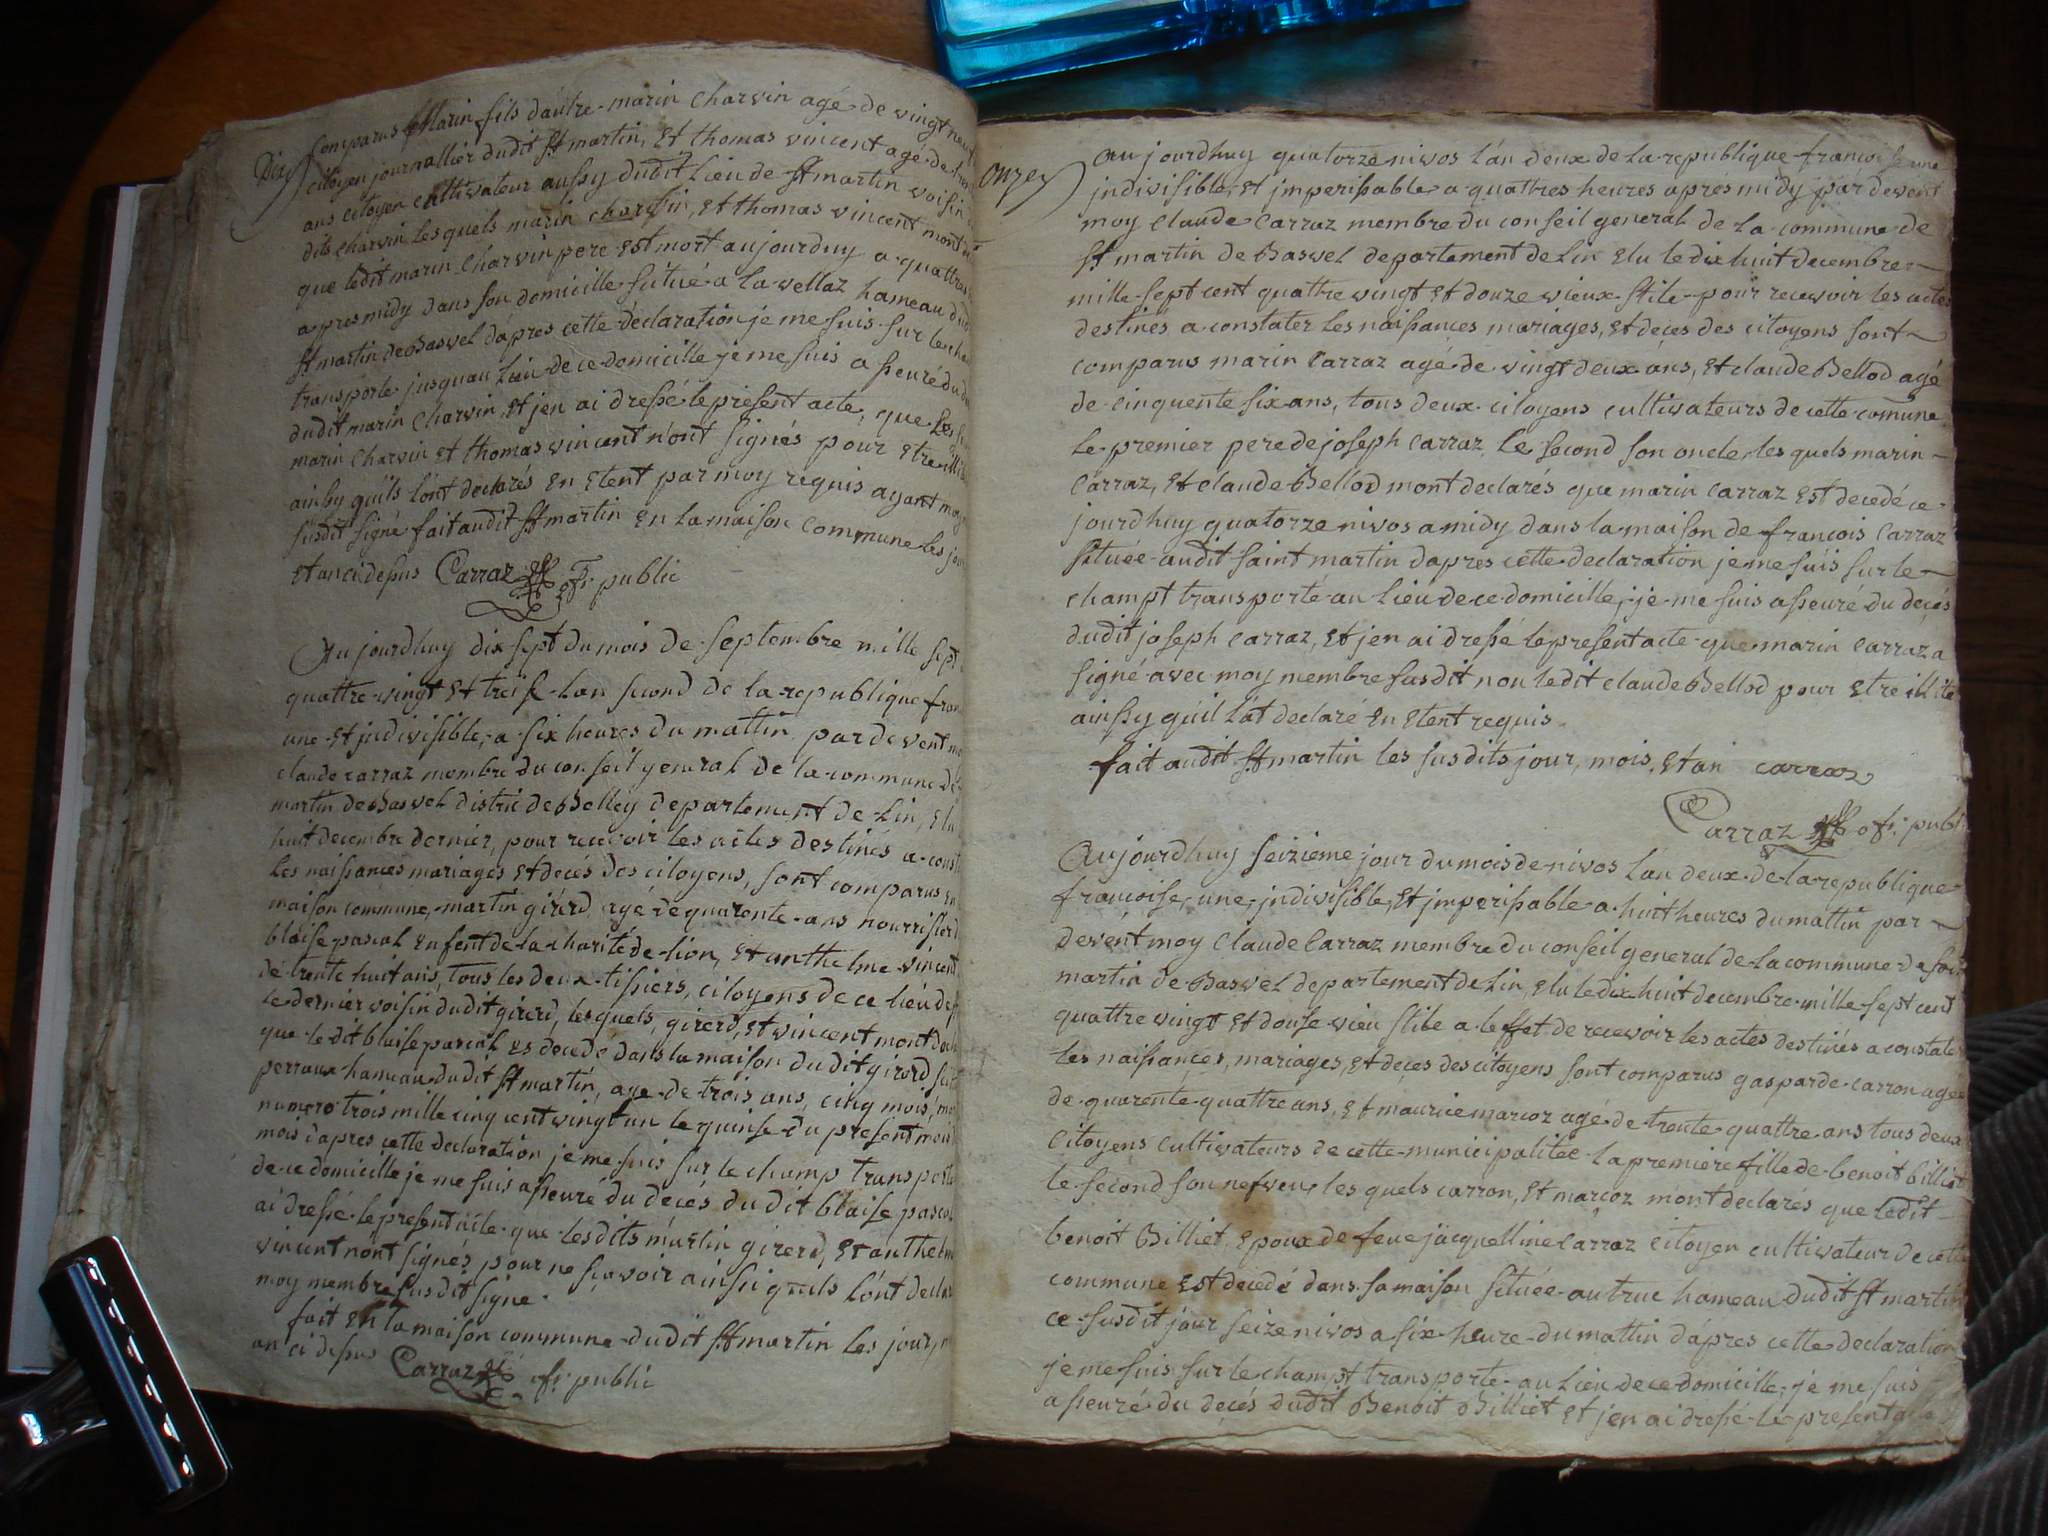 Dix
Comparus le Marin fils dautre marin Charvin agé de vingt neuf
citoyen journallier dudit St martin, Et thomas vincent agé de
ans citoyen cultivateur aussy dudit Lieu de St martin voisin
dits Charvin lesquels marin charvin, Et thomas vincent mont
que ledit marin Charvin pere Est mort aujourduy a quattre
apres midy dans son domicille situé a la vellaz hameau dud
St martin de Basvel dapres cette declaration je me suis sur le cha
transporte jusquau Lieu de ce domicille je me suis asseuré du
dudit marin Charvin Et jen ai dressé le present acte, que Les
marin Charvin Et thomas vincent nont signés pour Etre illi
ainsy quils lont declarés En Etent par moy requis ayant moy
susdit signé fait audit St martin En la maison Commune les jou
Et an ci dessus Carraz ofr public
Au jourdhuy dix sept du mois de septembre mille sept
quattre vingt Et treise Lan second de la republique fran
une Et jndivisible, a six heures du mattin par devent
claude carraz membre du conseil general de la commune de
martin de Basvel distric de Belley departement de Lin, Elu
huit decembre dernier, pour recevoir les actes destinés a const
les naissances mariages Et decés des citoyens, sont comparus En
maison commune, martin girerd agé de quarente ans nourrisier d
blaise pascal Enfent de la charité de lion, Et anthelme vincent
de trente huit ans, tous les deux tissiers, citoyens de ce lieu de
le dernier voisin dudit girerd, les quels, girerd, Et vincent mont decl
que le dit blaise pascal Es decedé dans la maison dudit girerd
perraux hameau dudit St martin, age de trois ans, cinq mois,
numero trois mille cinq cent vingt un le quinse du present mois
mois dapres cette declaration je me suis sur le champ transporté
de ce domicille je me suis asseuré du decés dudit blaise pascal
ai dressé le present acte que lesdits martin girerd, Et anthelm
vincent nont signés pour ne scavoir ainsi quils lont decla
moy membre susdit signe.
fait En la maison commune dudit St martin les jour,
an ci dessus Carraz ofr public
onze
Au jourdhuy quatorze nivos lan deux de la republique francoise une
jndivisible, Et jmperissable a quattres heures aprés midy par devent
moy Claude Carraz membre du conseil general de la commune de
St martin de Basvel departement de Lin Elu le dix huit decembre
mille sept cent quattre vingt Et douze vieux stile pour recevoir les actes
destinés a constater les naissances mariages, Et decés des citoyens sont
comparus marin Carraz agé de vingt deux ans, Et claude Bellod agé
de cinquente six ans, tous deux citoyens cultivateurs de cette comune
le premier pere de joseph Carraz le second son oncle, les quels marin
Carraz, Et claude Bellod mont declarés que marin Carraz Est decedé ce
jourdhuy quatorze nivos a midy dans la maison de francois Carraz
située audit saint martin dapres cette declaration je me suis sur le
champt transporté au Lieu de ce domicille, je me suis asseuré du decés
dudit joseph Carraz, Et jen ai dressé le present acte que marin Carraz a
signé avec moy membre susdit non ledit claude Bellod pour Etre illité
ainssy quil lat declaré En Etent requis
fait audit St martin les susdits jour, mois, Et an carraz
Carraz ofr publ
Aujourdhuy seizieme jour du mois de nivos lan deux de la republique
francoise, une, jndivisible, Et jmperissable a huit heures du mattin par
devent moy Claude Carraz membre du conseil general de la commune de
martin de Basvel departement de Lin, Elu le dix huit decembre mille sept cent
quattre vingt Et douse vieu stile a leffet de recevoir les actes destinés a constater
les naissances, mariages, Et decés des citoyens sont comparus gasparde carron agee
de quarente quattre ans, Et maurice marcoz agé de trente quattre ans tous deux
Citoyens cultivateurs de cette municipalitée la premiere fille de benoit billiet
le second son nefveu, les quels carron, Et marcoz mont declarés que ledit
benoit Billiet Epoux de feue jacquelline Carraz citoyen cultivateur de cette
commune Est decedé dans sa maison située au truc hameau dudit St martin
ce susdit jour seize nivos a six heure du mattin dapres cette declaration
je me suis sur le champt transporte au Lieu de ce domicille, je me suis
asseuré du decés dudit Benoit Billiet Et jen ai dressé le present acte